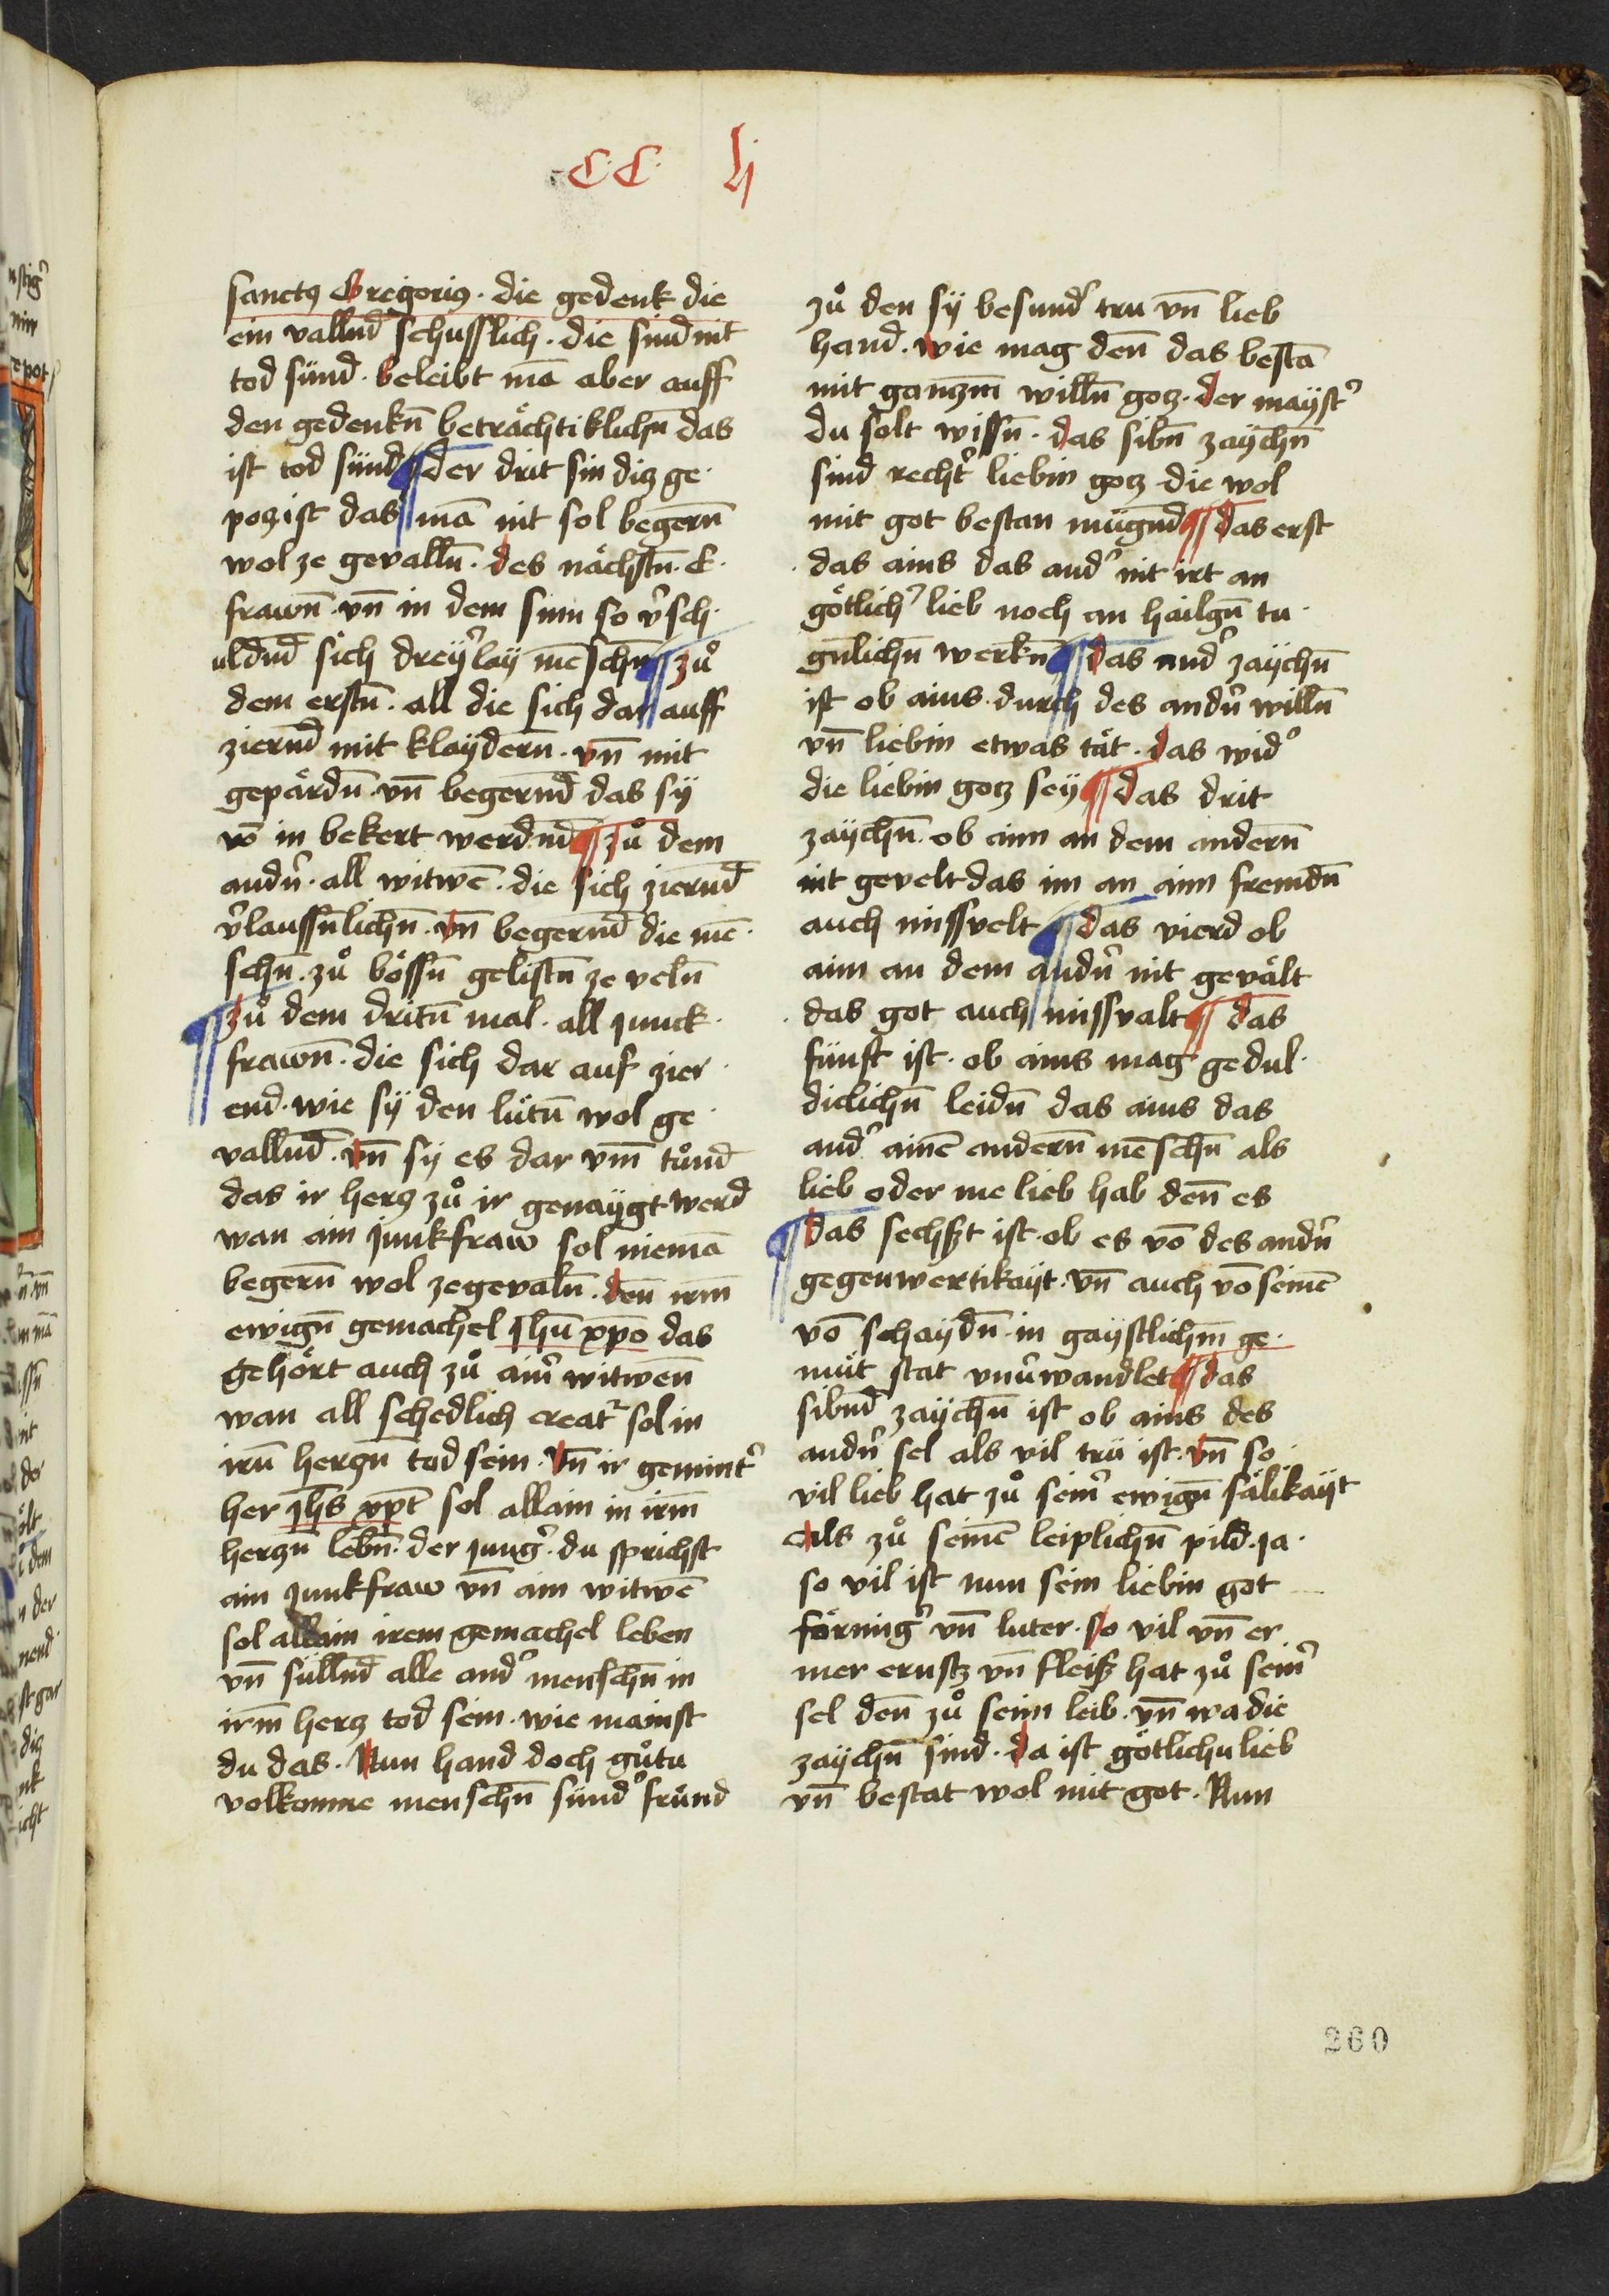 C C lj
sanctꝰ Gregoriꝰ · die gedenk die
ein vallnd̄ schusslich · die sind nit
tod sünd · beleibt mā aber auff
den gedenkn̄ beträchtiklichn̄ das
ist tod sünd ¶ der drit sin diz ge·
poz ist das mā nit sol begern̄
wol ze gevalln̄ · des nächstn̄ · E·
frawn̄ · vn̄ in dem sinn so v̾sch·
uldnd̄ sich drey̾lay mēschn̄ ¶ zů
dem erstn̄ · all die sich dar auff
ziernd̄ mit klaydern̄ · vn̄ mit
gepärdn̄ · vn̄ begernd̄ das sy
vō in bekert werdnd̄ ¶ zů dem
andn̾ · all witwē · die sich ziernd̄
v̾laussn̄lichn̄ · vn̄ begernd̄ die mē·
schn̄ · zů bössn̄ gelistn̄ ze veln̄
¶ zů dem dritn̄ mal · all junck·
frawn̄ · die sich dar auf zier·
end · wie sy den lütn̄ wol ge·
vallnd̄ · vn̄ sy es dar vm̄ tůnd
das ir herz zů ir genaygt werd
wan ain junkfraw sol niemā
begern̄ wol ze gevaln̄ · den̄ irm̄
ewign̄ gemachel jhū xp̄o das
gehört auch zů aim̾ witwen̄
wan all schedlich creatᷣ sol in
irn̄ herzn̄ tod sein · vn̄ ir gemint̾
her jhs xp̄t sol allain in irm̄
herzn̄ lebn̄ · der jung̾ · du sprichst
ain junkfraw vn̄ ain witwē
sol allain irem gemachel leben
vn̄ süllnd̄ alle and̾ menschn̄ in
irm̄ herz tod sein · wie mainst
du das · Nun hand doch gůtu
volkomme menschn̄ sund̾ fründ
zů den sy besund̾ tru vn̄ lieb
hand · wie mag den̄ das bestā
mit ganzm̄ willn̄ goz · der mayst̾
du solt wissn̄ · das sibn̄ zaychn̄
sind recht̾ liebin goz die wol
mit got bestan mügnd̄ ¶ das erst
das ains das and̾ nit irt an
götlich̾ lieb noch an hailgn̄ tu·
gn̄lichn̄ werkn̄ ¶ das and̾ zaychn̄
ist ob ains · durch des andn̾ willn̄
vn̄ liebin etwas tät · das wid̾
die liebin goz sey ¶ das drit
zaychn̄ · ob aim an dem andern̄
nit gevelt das im an aim fremdn̄
auch missvelt ¶ das vierd ob
aim an dem andn̾ nit gevält
das got auch missvalt ¶ das
fünft ist · ob ains mag gedul·
diclichn̄ leidn̄ das ains das
and̾ ainē andern̄ mēschn̄ als
lieb oder me lieb hab den̄ es
¶ das sechst ist · ob es vō des andn̾
gegenwertikayt · vn̄ auch vō seinē
vō schaydn̄ · in gaystlichm̄ ge·
müt stat vnv̾wandlet ¶ das
sibnd̄ zaychn̄ ist ob ains des
andn̾ sel als vil trü ist · vn̄ so
vil lieb hat zů seim̾ ewign̄ sälikayt
als zů seinē leiplichn̄ pild · ja·
so vil ist nun sein liebin got
förmig̾ vn̄ luter · so vil vn̄ er
mer ernstz vn̄ fleiß hat zů seim̾
sel den̄ zů seim leib · vn̄ wa die
zaychn̄ sind · da ist götlichu lieb
vn̄ bestat wol mit got · Nun
260